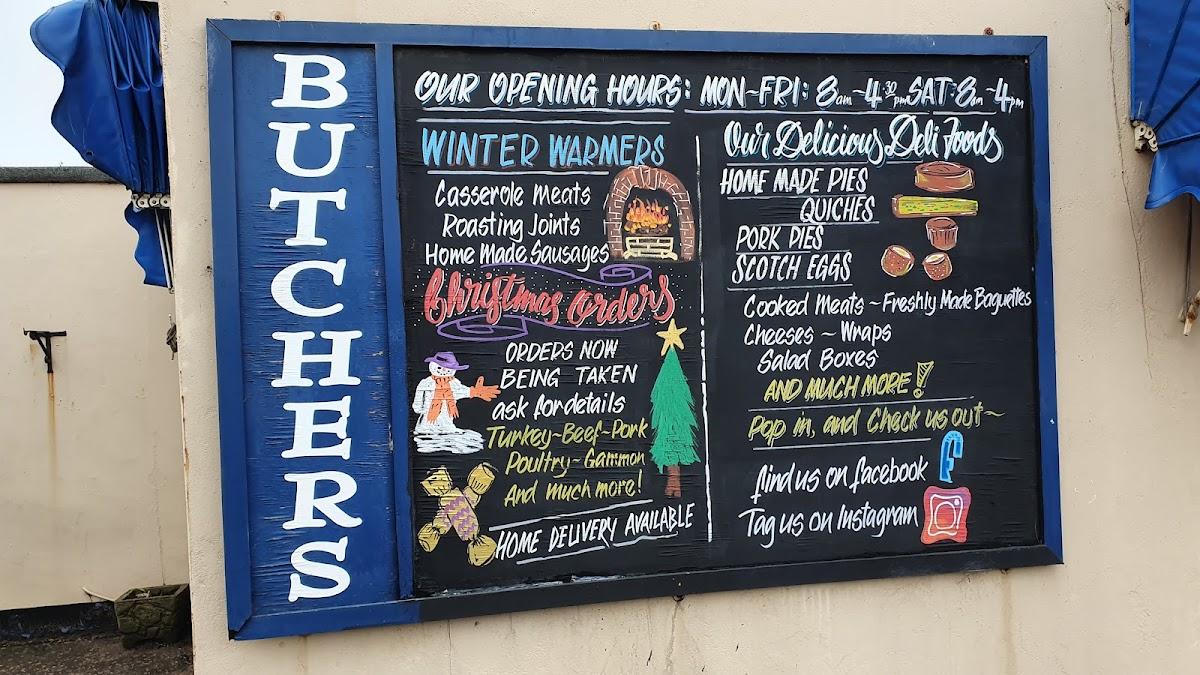 BUTCHERS
OUR OPENING HOURS: MON~FRI: 8am~4.30pm SAT: 8am~4pm
WINTER WARMERS
Casserole Meats
Roasting Joints
Home Made Sausages
Christmas Orders
ORDERS NOW
BEING TAKEN
ask for details
Turkey~Beef~Pork
Poultry~Gammon
And much more!
HOME DELIVERY AVAILABLE
Our Delicious Deli Foods
HOME MADE PIES
QUICHES
PORK PIES
SCOTCH EGGS
Cooked Meats ~ Freshly Made Baguettes
Cheeses ~ Wraps
Salad Boxes
AND MUCH MORE!
Pop in, and Check us out~
find us on facebook f
Tag us on Instagram